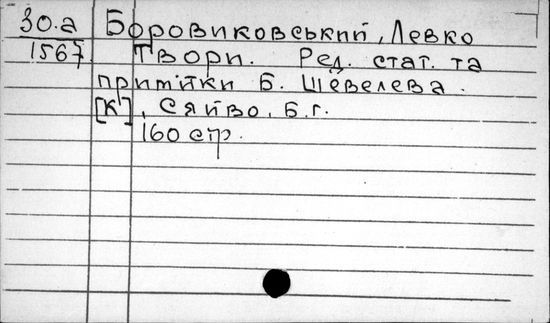 30.а Боровиковський, Левко
1567 Твори. Ред. стат. та
примітки Б. Шевелева.
[К], Сяйво, б.г.
160 стр.